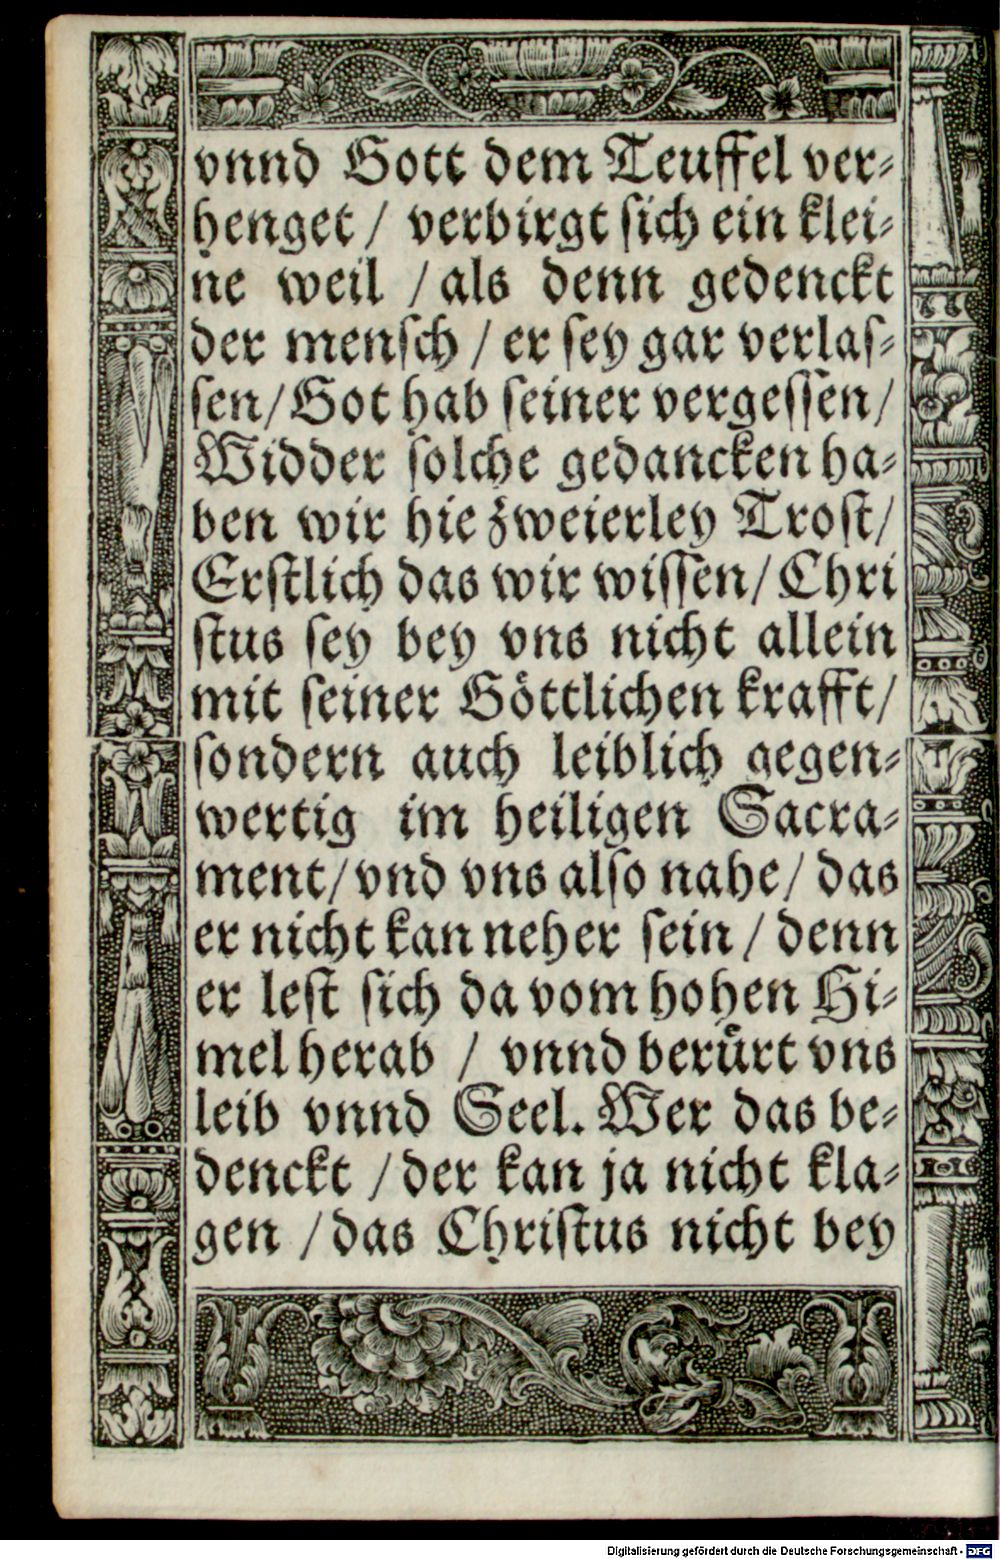 vnnd Gott dem Teuffel ver⸗
henget / verbirgt sich ein klei⸗
ne weil / als denn gedenckt
der mensch / er sey gar verlas⸗
sen / Got hab seiner vergessen /
Widder solche gedancken ha⸗
ben wir hie zweierley Trost /
Erstlich das wir wissen / Chri
stus sey bey vns nicht allein
mit seiner Göttlichen krafft /
sondern auch leiblich gegen⸗
wertig im heiligen Sacra⸗
ment / vnd vns also nahe / das
er nicht kan neher sein / denn
er lest sich da vom hohen Hi⸗
mel herab / vnnd berürt vns
leib vnnd Seel. Wer das be⸗
denckt / der kan ja nicht kla⸗
gen / das Christus nicht bey
Digitalisierung gefördert durch die Deutsche Forschungsgemeinschaft - DFG